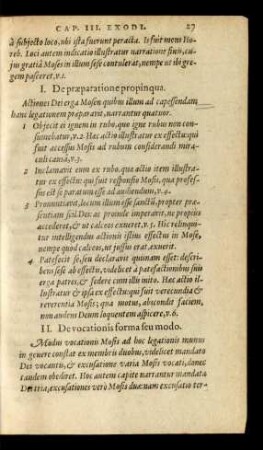 CAP. III. EXODI. 27
à subjecto loco, ubi ista fuerunt peracta. Is fuit mons Ho-
reb. Loci autem indicatio illustratur narratione finis, cu-
jus gratiâ Moses in illum sese contulerat, nempe ut ibi gre-
gem pasceret, v.1.
I. De præparatione propinqua.
Actiones Dei erga Mosen quibus illum ad capessendam
hanc legationem præparavit, narrantur quatuor.
1 Objecit ei ignem in rubo, quo igne rubus non con-
sumebatur, v.2. Hæc actio illustratur ex effectu: qui
fuit accessus Mosis ad rubum considerandi mira-
culi causâ, v.3.
2 Inclamavit eum ex rubo, quæ actio item illustra-
tur ex effectu: qui fuit responsio Mosis, qua profes-
sus est se paratum esse ad audiendum, v.4.
3 Pronuntiavit, locum illum esse sanctū, propter præ-
sentiam sui. Dei: ac proinde imperavit, ne propius
accederet, & ut calceos exueret, v.5. Hic relinqui-
tur intelligendus actionis istius effectus in Mose,
nempe quod calceos, ut jussus erat, exuerit.
4 Patefecit se, seu declaravit quinam esset: descri-
bens sese ab effectu, videlicet à patefactionibus suis
erga patres, & fœdere cum illis inito. Hæc actio il-
lustratur & ipsa ex effectu: qui fuit verecundia &
reverentia Mosis; qua motus, abscondit faciem,
non audens Deum loquentem aspicere, v.6.
II. De vocationis forma seu modo.
Modus vocationis Mosis ad hoc legationis munus
in genere constat ex membris duobus, videlicet mandato
Dei vocantis, & excusatione varia Mosis vocati, donec
tandem obediret. Hoc autem capite narrantur mandata
Dei tria, excusationes verò Mosis duæ: nam excusatio ter-